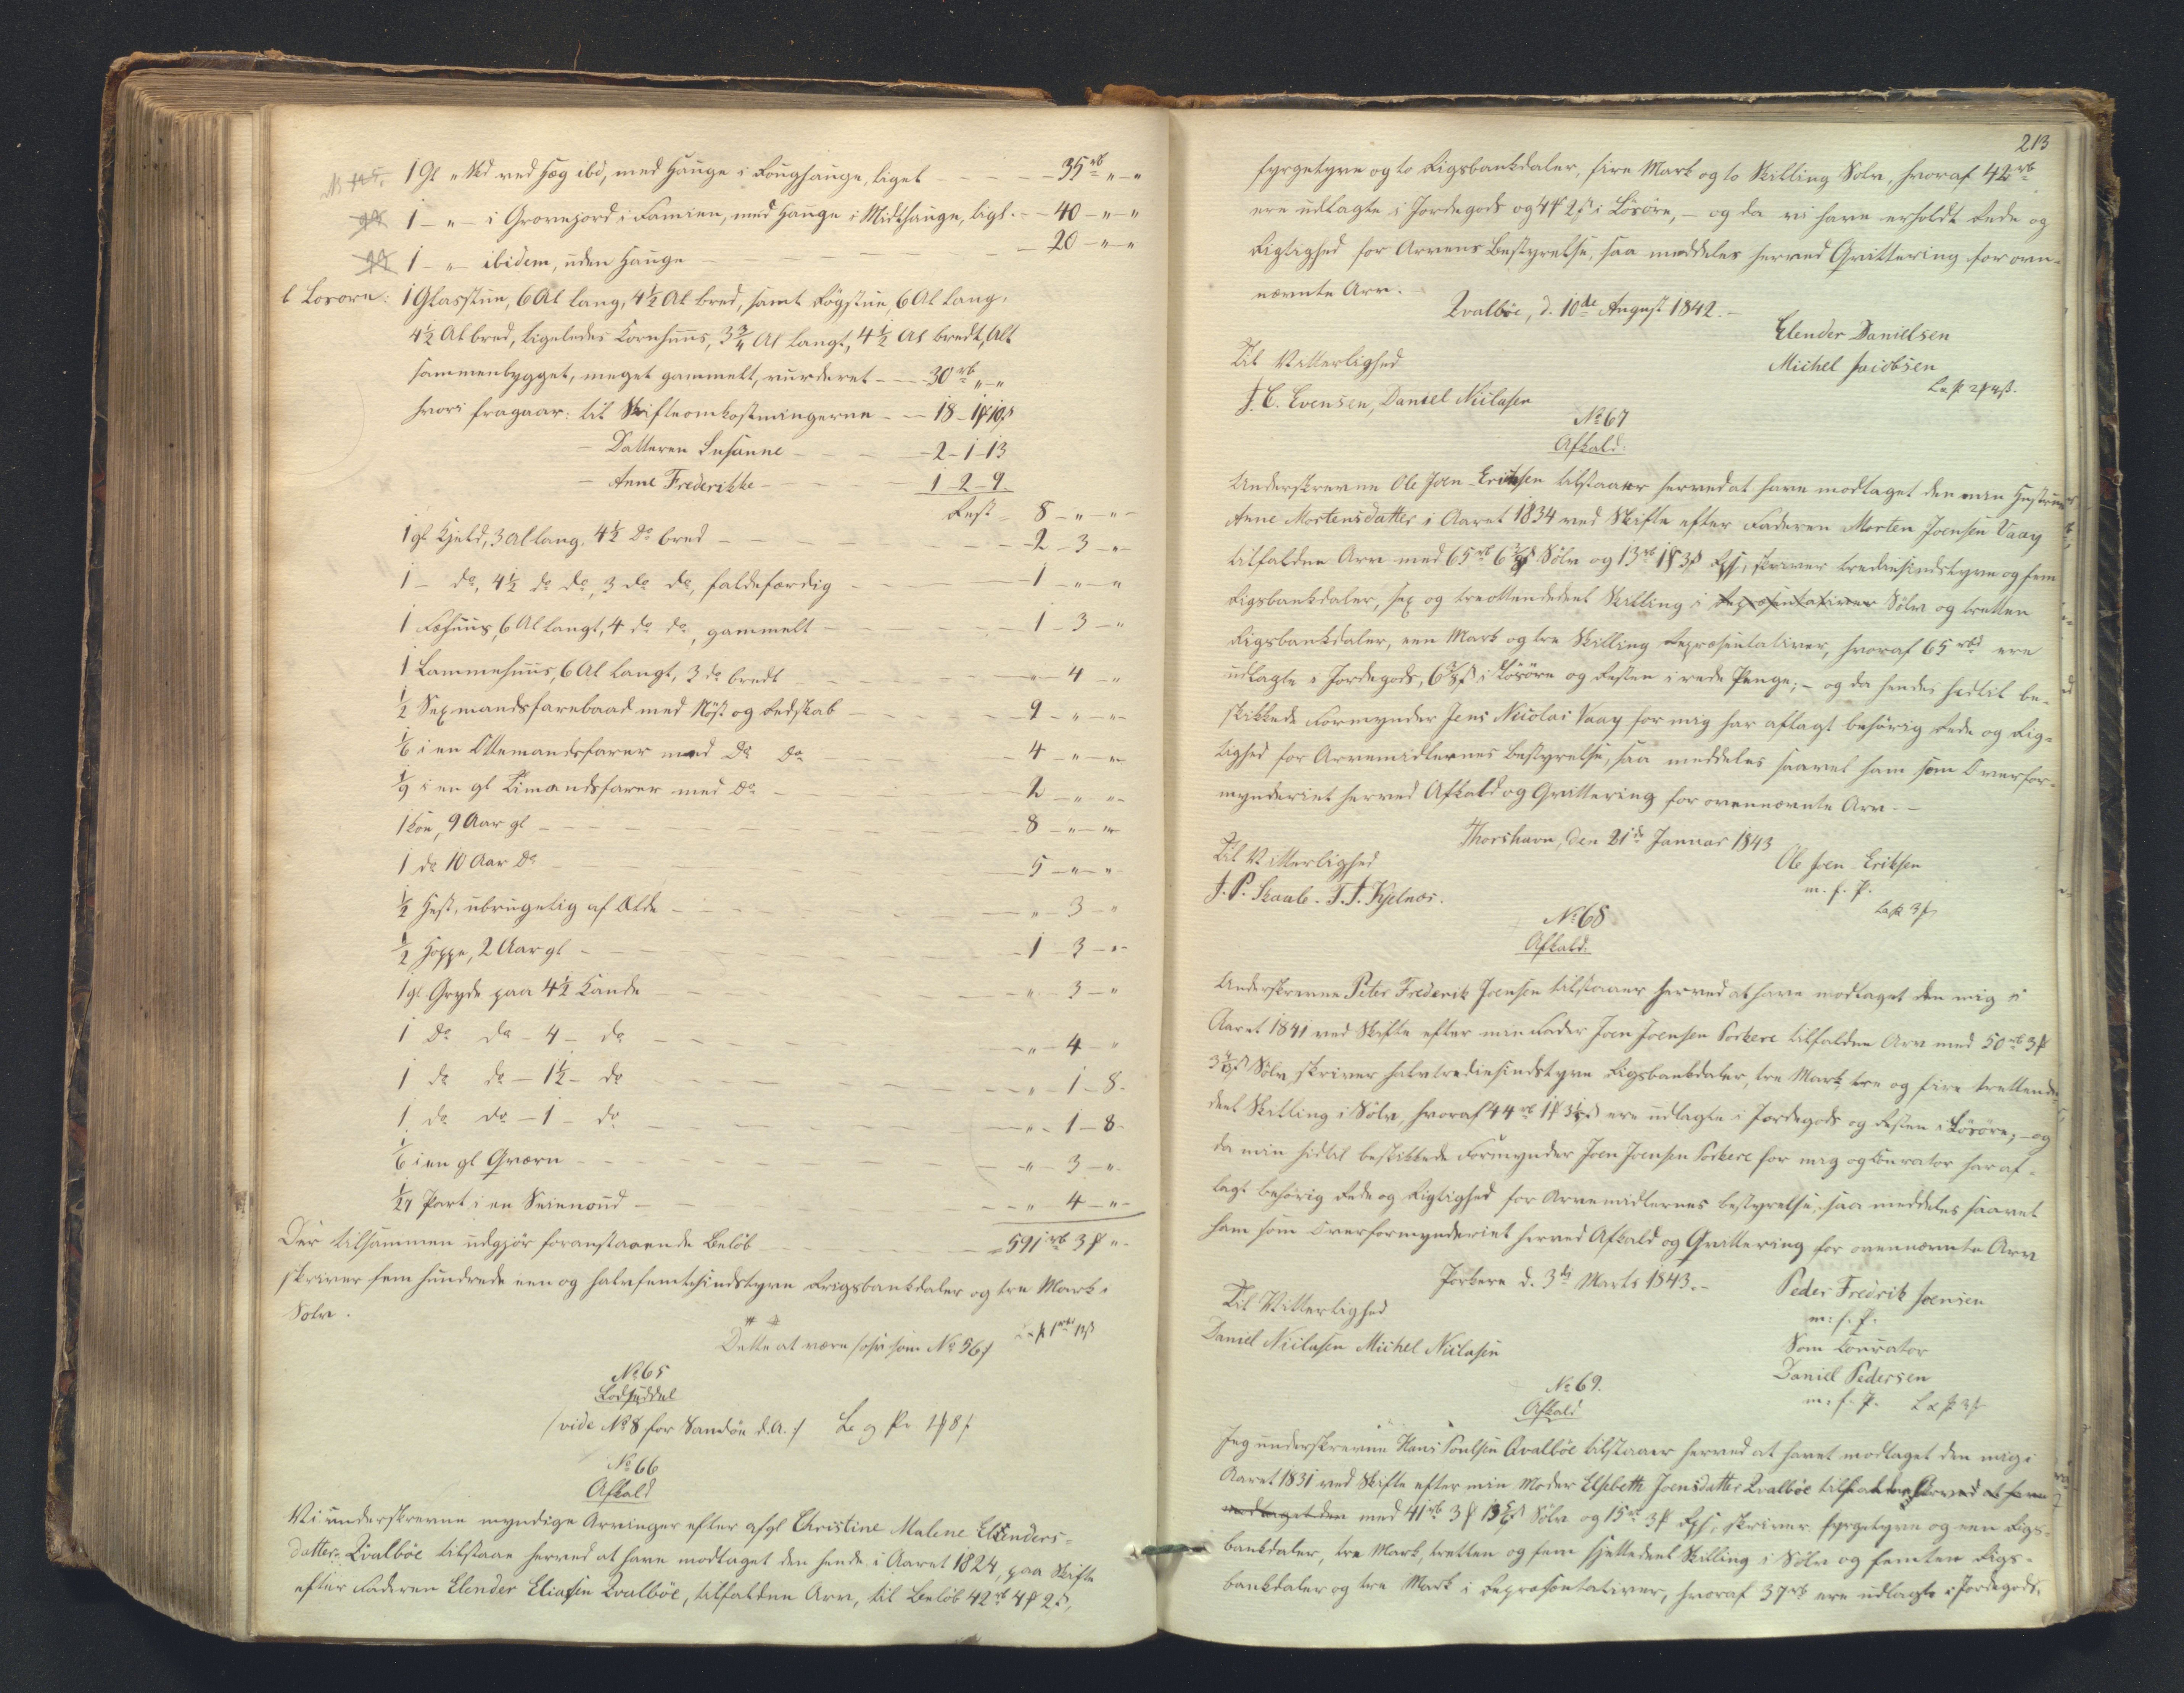 1 Gl „ Skd ved Høg ibd, med Hauge i Longhauge, liget — 35 rb „ — „
1 — „ — i Grovejord i Famien, med Hauge i Midthauge, ligt. — 40 — „ — „
1 — „ — ibidem, uden Hauge — 20 — „ — „
Losore: 1 Glasstue, 6 Al lang, 4½ Al bred, samt Rögstue, 6 Al lang,
4½ Al bred, ligeledes Kornhuus, 3¾ Al langt, 4½ Al bredt, Alt
sammenbygget, meget gammelt, vurderet — 30 rb „ — „
hvori fragaar: til Skifteomkostningerne — 18 — 1 ₰ 10 s
— Datteren Susanne — 2 — 1 — 13
— Anne Frederikke — 1 — 2 — 9
Rest — 8 — „ — „
1 gl Hjeld, 3 al lang, 4½ do bred — 2 — 3 — „
1 — do, 4½ do do, 3 do do, faldefærdig — 1 — „ — „
1 Fæhuus, 6 Al langt, 4 do do, gammelt — 1 — 3 — „
1 Lammehuus, 6 Al langt, 3 do bredt — „ — 4 — „
½ Sexmandsfarebaad med Nöst og Redskab — 9 — „ — „
⅙ i en Ottemandsfarer med do do — 4 — „ — „
1/9 i en gl Timandsfarer med do — 2 — „ — „
1 Koe, 9 Aar gl — 8 — „ — „
1 do 10 Aar do — 5 — „ — „
½ Hest, ubrugelig af Ælde — „ — 3 — „
½ Hoppe, 2 Aar gl — 1 — 3 — „
1 gl Gryde paa 4½ Kande — „ — 3 — „
1 do do — 4 — do — „ — 4 — „
1 do do — 1½ — do — „ — 1 — 8
1 do do — 1 — do — „ — 1 — 8
⅙ i en gl Qværn — „ — 3 — „
1/24 Part i en Seienoud — „ — 4 — „
Der tilsammen udgjör foranstaaende Belöb — 591 rb 3 ₰ „
skriver fem hundrede een og halvfemtesindstyve Rigsbankdaler og tre Mark i
Sölv.
Dette at være sohr som No 56/
No 65
Lodseddel
/vide No 8 for Sandöe d. A./ L. og P. 1 ₰ 8 s
No 66
Afkald
Vi underskrevne myndige Arvinger efter afgl Christine Malene Elenders-
datter Qvalböe tilstaae herved at have modtaget den hende i Aaret 1824, paa Skifte
efter Faderen Elender Eliasen Qvalböe, tilfaldne Arv, til Belöb 42 rb 4 ₰ 2 s,
213
fyrgetyve og to Rigsbankdaler, fire Mark og to Skilling Sölv, hvoraf 42 rb
ere udlagte i Jordegods og 4 ₰ 2 s i Lösöre, — og da vi have erholdt Rede og
Rigtighed for Arvens Bestyrelse, saa meddeles herved Qvittering for oven-
nævnte Arv.
Qvalböe, d. 10de August 1842. —
Elender Danielsen
Til Vitterlighed
Michel Jacobsen
J. C. Evensen, Daniel Niclasen
L. & P. 2 ₰ 4 s.
No 67
Afkald:
Underskrevne Ole Joen Eriksen tilstaaer herved at have modtaget den min Hustrue
Anne Mortensdatter i Aaret 1834 ved Skifte efter Faderen Morten Joensen Vaag
tilfaldne Arv med 65 rb 6⅜ s Sölv og 13 rb 1 ₰ 3 s Rps, skriver trediesindstyve og fem
Rigsbankdaler, sex og treottendedeel Skilling i Repræsentativer Sölv og tretten
Rigsbankdaler, een Mark og tre Skilling Repræsentativer, hvoraf 65 rbd ere
udlagte i Jordegods, 6⅜ s i Lösöre og Resten i rede Penge; — og da hendes hidtil be-
skikkede Formynder Jens Nicolai Vaag for mig har aflagt behörig Rede og Rig-
tighed for Arvemidlernes Bestyrelse, saa meddeles saavel ham som Overfor-
mynderiet herved Afkald og Qvittering for ovennævnte Arv. —
Thorshavn, den 21de Januar 1843
Til Vitterlighed
Ole Joen Eriksen
m. f. P.
J. P. Skaale. J. J. Kjelnæs.
L. & P. 3 ₰
No 68
Afkald:
Underskrevne Peter Frederik Joensen tilstaaer herved at have modtaget den mig i
Aaret 1841 ved Skifte efter min Fader Joen Joensen Porkere tilfaldne Arv med 50 rb 3 ₰
3 4/13 s Sölv, skriver halvtrediesindstyve Rigsbankdaler, tre Mark, tre og fire trettende-
deel Skilling i Sölv, hvoraf 44 rb 1 ₰ ere udlagte i Jordegods og Resten i Lösöre; — og
da min hidtil beskikkede Formynder Joen Joensen Porkere for mig og Curator har af-
lagt behörig Rede og Rigtighed for Arvemidlernes Bestyrelse, saa meddeles saavel
ham som Overformynderiet herved Afkald og Qvittering for ovennævnte Arv
Porkere d. 3de Marts 1843. —
Peder Fredrik Joensen
Til Vitterlighed
m: f. P.
Daniel Niclasen Michel Niclasen
Som Curator
Daniel Pedersen
m: f. P. L & P 3 ₰
No 69.
Afkald
Jeg underskrevne Hans Poulsen Qvalböe tilstaaer herved at havet modtaget den mig i
Aaret 1831 ved Skifte efter min Moder Elsebeth Joensdatter Qvalböe tilfaldne herved at have
modtaget den med 41 rb 3 ₰ 13⅚ s Sölv og 15 rb 3 ₰ Rps, skriver fyrgetyve og een Rigs-
bankdaler, tre Mark, tretten og fem sjettedeel Skilling i Sölv og femten Rigs-
bankdaler og tre Mark i Repræsentativer, hvoraf 37 rb ere udlagte i Jordegods,